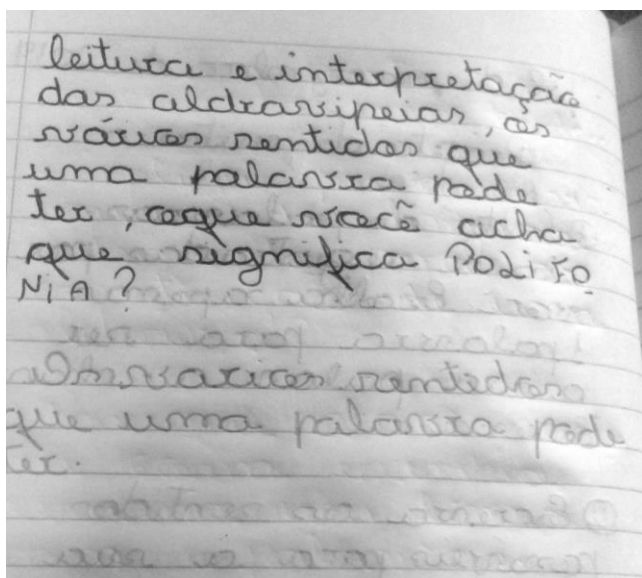 leitura e interpretação
das aldravipeias, os
vários sentidos que
uma palavra pode
ter, oque você acha
que significa POLiFO
NiA?
Os varios sentidos
que uma palavra pode
ter.